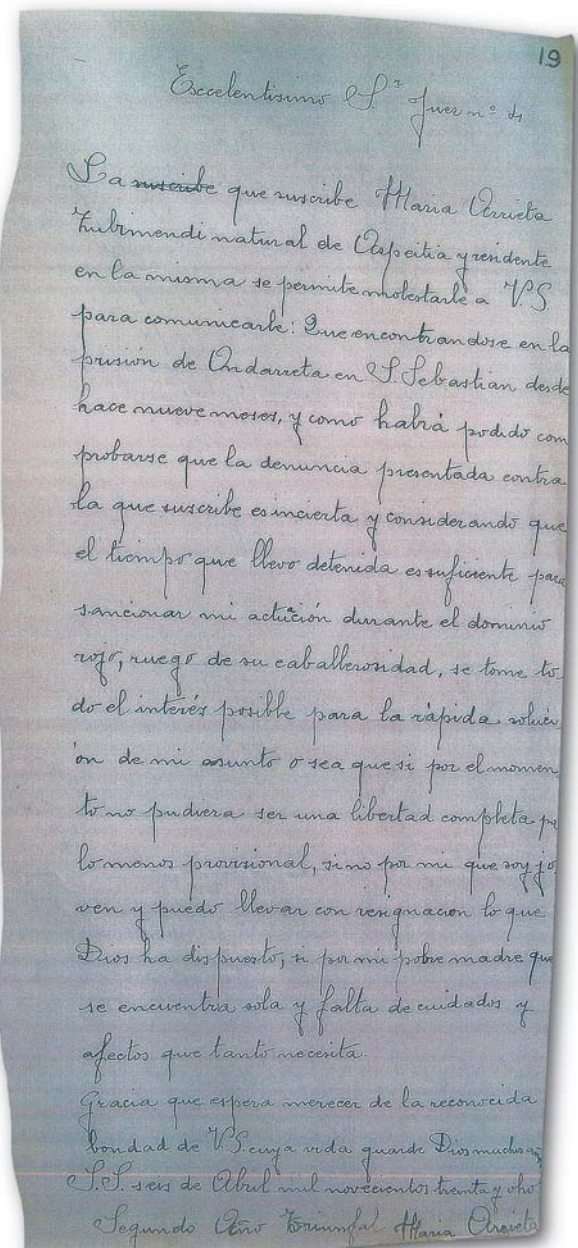 19
Excelentisimo Sr Juez nº 4
La suscribe que suscribe Maria Arrieta
Zubimendi natural de Azpeitia y residente
en la misma se permite molestarle a V.S.
para comunicarle: Que encontrandose en la
prisión de Ondarreta en S. Sebastian desde
hace nueve meses, y como habrá podido com
probarse que la denuncia presentada contra
la que suscribe es incierta y considerando que
el tiempo que llevo detenida es suficiente para
sancionar mi actuación durante el dominio
rojo, ruego de su caballerosidad, se tome to
do el interés posible para la rápida soluci
ón de mi asunto o sea que si por el momen
to no pudiera ser una libertad completa por
lo menos provisional, sino por mi que soy jo
ven y puedo llevar con resignacion lo que
Dios ha dispuesto, si por mi pobre madre que
se encuentra sola y falta de cuidados y
afectos que tanto necesita.
Gracia que espera merecer de la reconocida
bondad de V.S. cuya vida guarde Dios muchos años
S.S. seis de Abril mil novecientos treinta y ocho
Segundo Año Triunfal Maria Arrieta